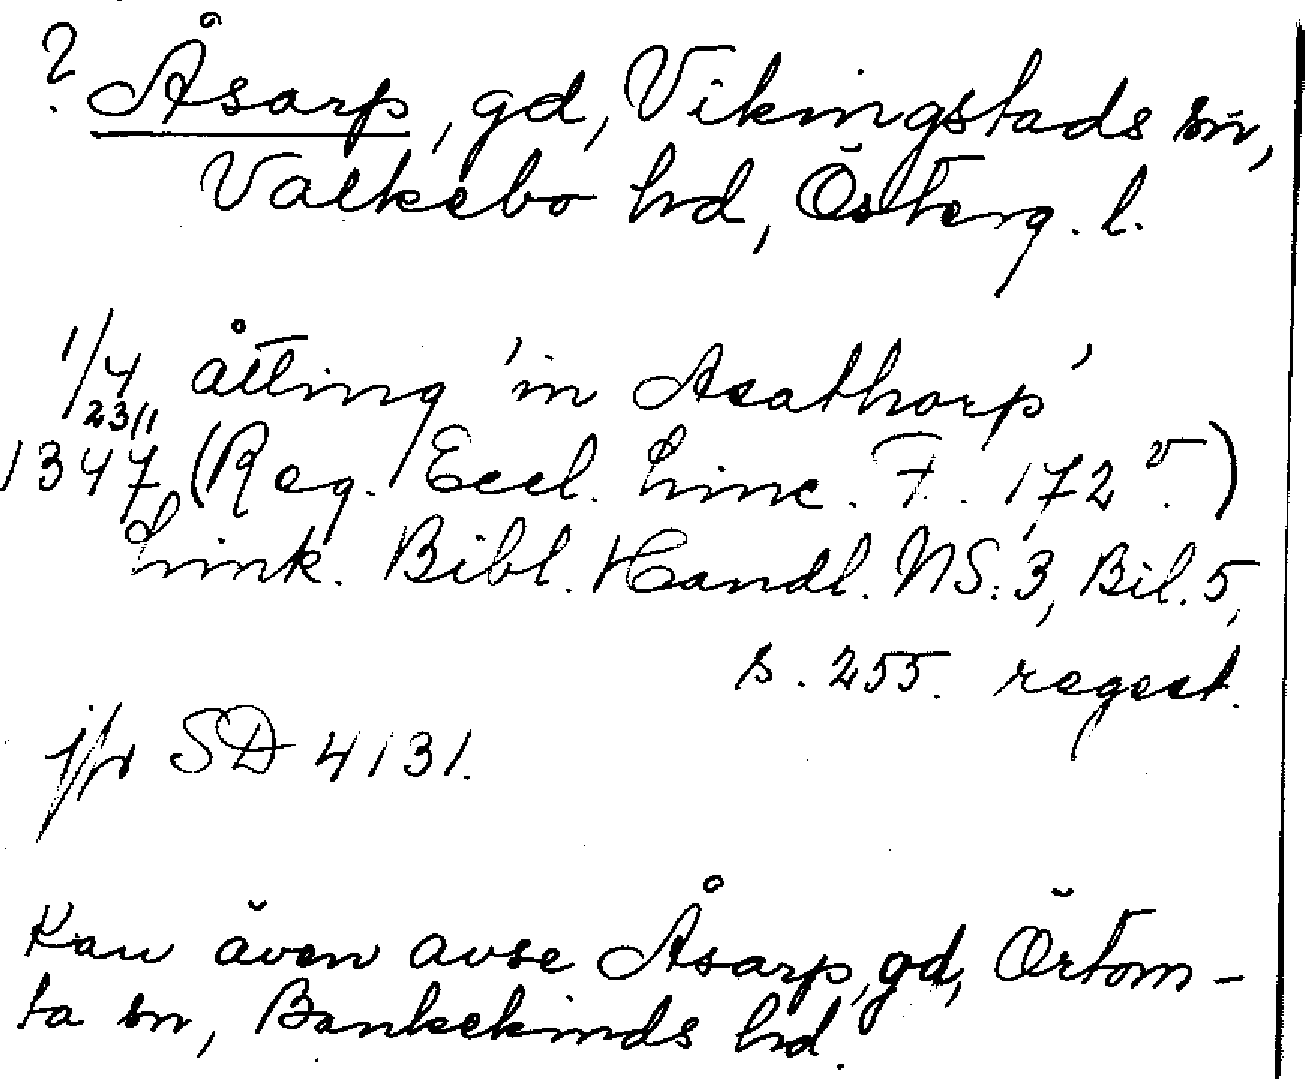 ? Åsarp, gd, Vikingstads sn,
Valkebo hd, Österg. l.
1/4 åtting 'in Asathorp'
23/11
1347 (Reg. Eccl. Linc. F. 172 v.)
Link. Bibl. Handl. NS: 3, Bil. 5,
s. 255. regest.
jfr SD 4131.
Kan även avse Åsarp, gd, Örtom-
ta sn, Bankekinds hd.